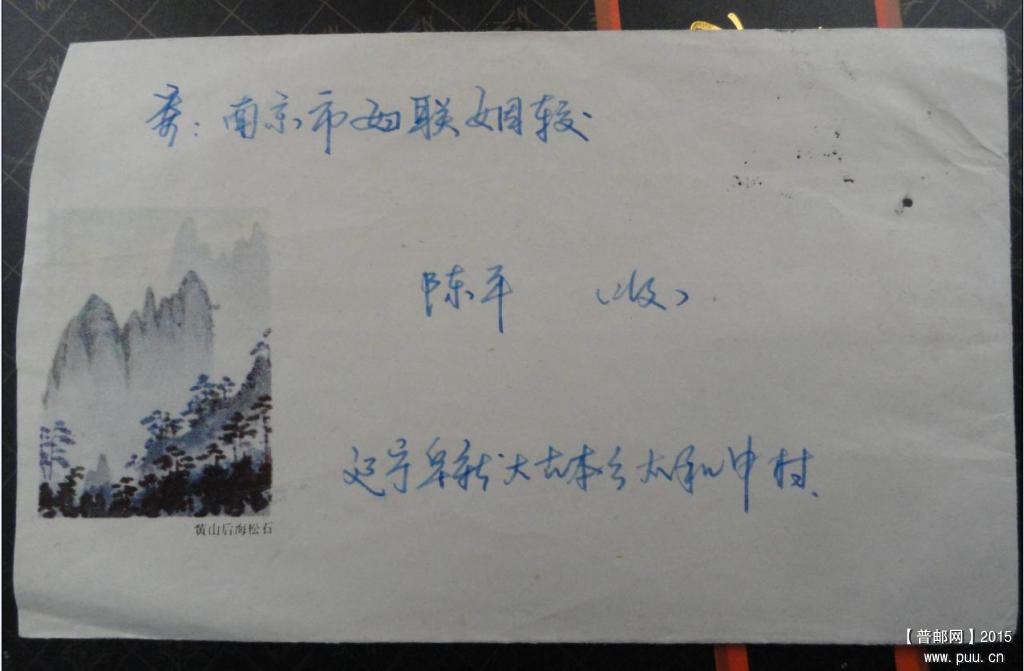 寄：南京市妇联姻校
陈平 （收）
辽宁阜新大古本乡太和中村
黄山后海松石
【普邮网】2015
www.puu.cn